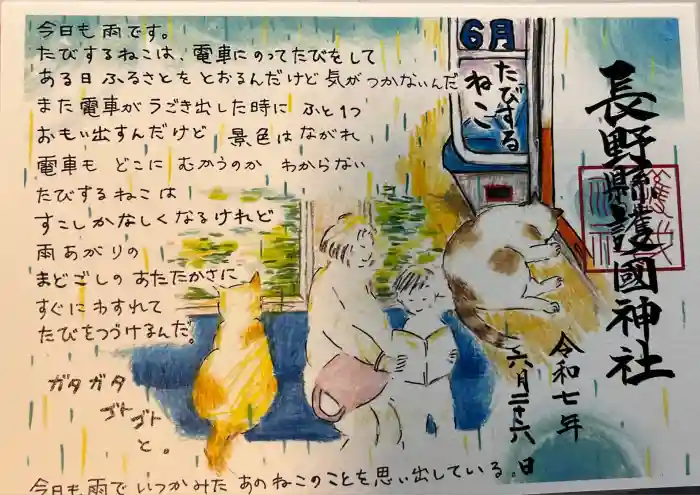 今日も雨です。
たびするねこは、電車にのってたびをして
ある日ふるさとをとおるんだけど気がつかないんだ
また電車がうごき出した時にふと1つ
おもい出すんだけど 景色はながれ
電車も どこに むかうのか わからない
たびするねこは
すこしかなしくなるけれど
雨あがりの
まどごしのあたたかさに
すぐにわすれて
たびをつづけるんだ。
ガタガタ
ゴトゴト
と。
今日も雨でいつかみたあのねこのことを思い出している。
6月
たびする
ねこ
長野縣護國神社
令和七年
六月二十六日